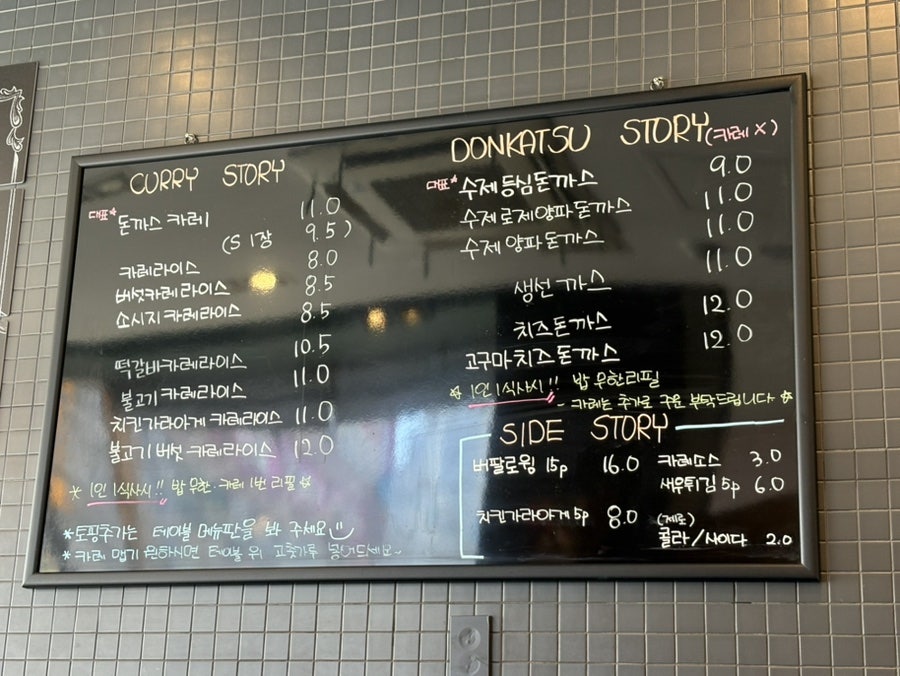 CURRY STORY
대표* 돈까스 카레 11.0
(S 1장 9.5)
카레라이스 8.0
버섯카레라이스 8.5
소시지 카레라이스 8.5
떡갈비카레라이스 10.5
불고기 카레라이스 11.0
치킨가라아게 카레라이스 11.0
불고기 버섯카레라이스 12.0
☆ 1인 1식사시!! 밥 무한. 카레 1번 리필 ☆
*토핑추가는 테이블 메뉴판을 봐 주세요
* 카레 맵기 원하시면 테이블 위 고춧가루 넣어드세요~
DONKATSU STORY (카레 X)
대표* 수제등심돈까스 9.0
수제로제양파돈까스 11.0
수제양파돈까스 11.0
생선까스 11.0
치즈돈까스 12.0
고구마치즈돈까스 12.0
☆ 1인 1식사시!! 밥 무한리필
- 카레는 추가로 구운 부탁드립니다 ☆
SIDE STORY
버팔로윙 15p 16.0
치킨가라아게 5p 8.0
카레소스 3.0
새우튀김 5p 6.0
(제로)
콜라/사이다 2.0